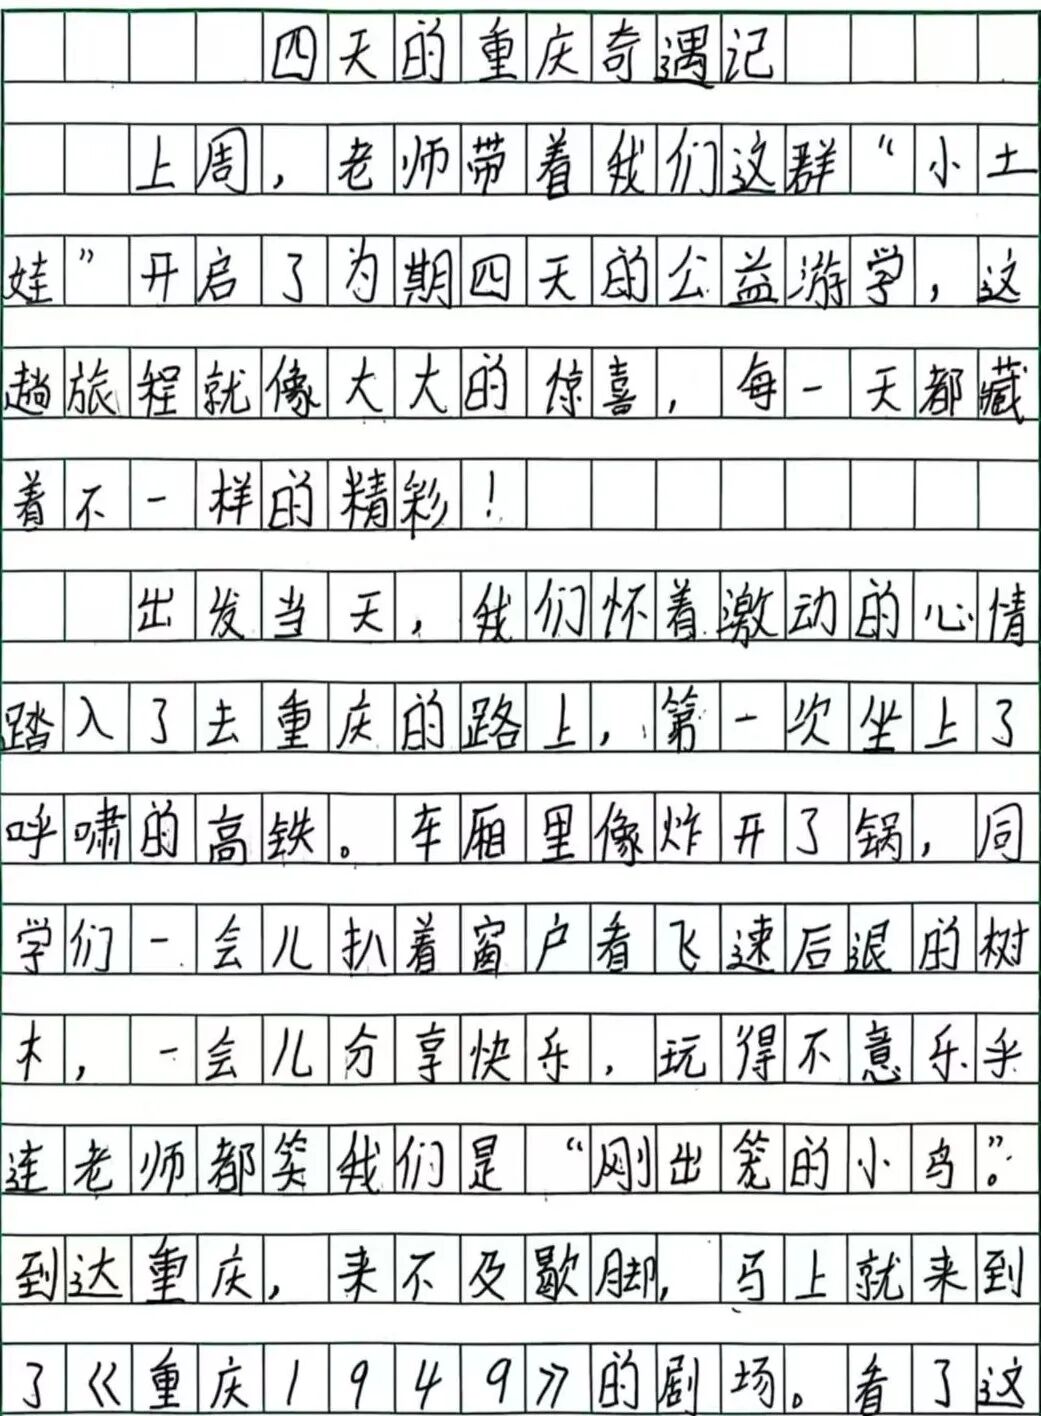 四天的重庆奇遇记
上周，老师带着我们这群“小土
娃”开启了为期四天的公益游学，这
趟旅程就像大大的惊喜，每一天都藏
着不一样的精彩！
出发当天，我们怀着激动的心情
踏入了去重庆的路上，第一次坐上了
呼啸的高铁。车厢里像炸开了锅，同
学们一会儿扒着窗户看飞速后退的树
木，一会儿分享快乐，玩得不意乐乎
连老师都笑我们是“刚出笼的小鸟”。
到达重庆，来不及歇脚，马上就来到
了《重庆1949》的剧场。看了这